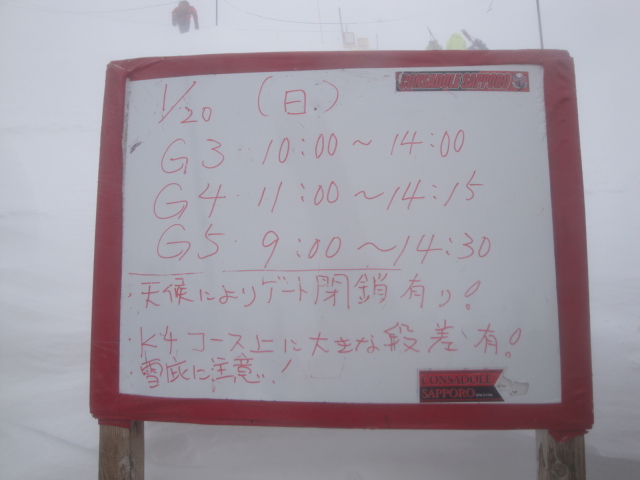 1/20 (日)
CONSADOLE SAPPORO
G3 10:00～14:00
G4 11:00～14:15
G5 9:00～14:30
・天候によりゲート閉鎖有り!
・K4コース上に大きな段差有!
・雪庇に注意!
CONSADOLE
SAPPORO